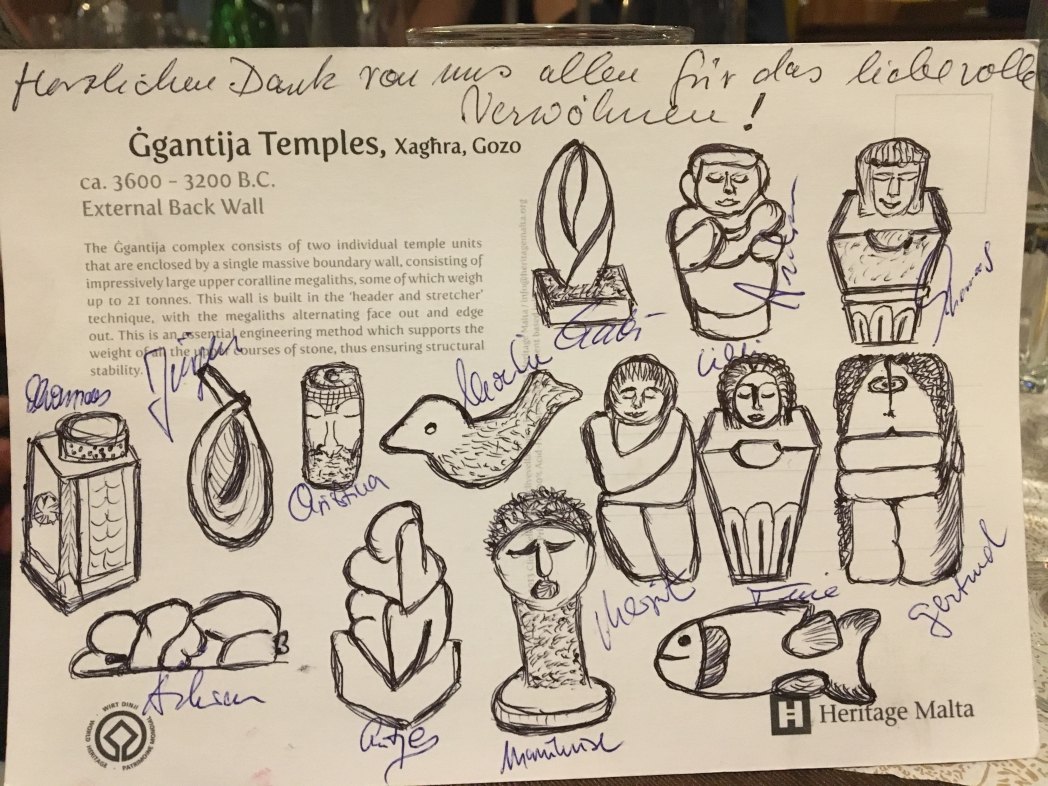 Herzlichen Dank von uns allen für das liebevolle
Verwöhnen!
Ġgantija Temples, Xagħra, Gozo
ca. 3600 – 3200 B.C.
External Back Wall
The Ġgantija complex consists of two individual temple units
that are enclosed by a single massive boundary wall, consisting of
impressively large upper coralline megaliths, some of which weigh
up to 21 tonnes. This wall is built in the 'header and stretcher'
technique, with the megaliths alternating face out and edge
out. This is an essential engineering method which supports the
weight of all the upper courses of stone, thus ensuring structural
stability.
Thomas
Gabi
Thomas
Christina
Margit
Gertrud
Antje
WIRT DINJI
WORLD HERITAGE • PATRIMOINE MONDIAL
Heritage Malta